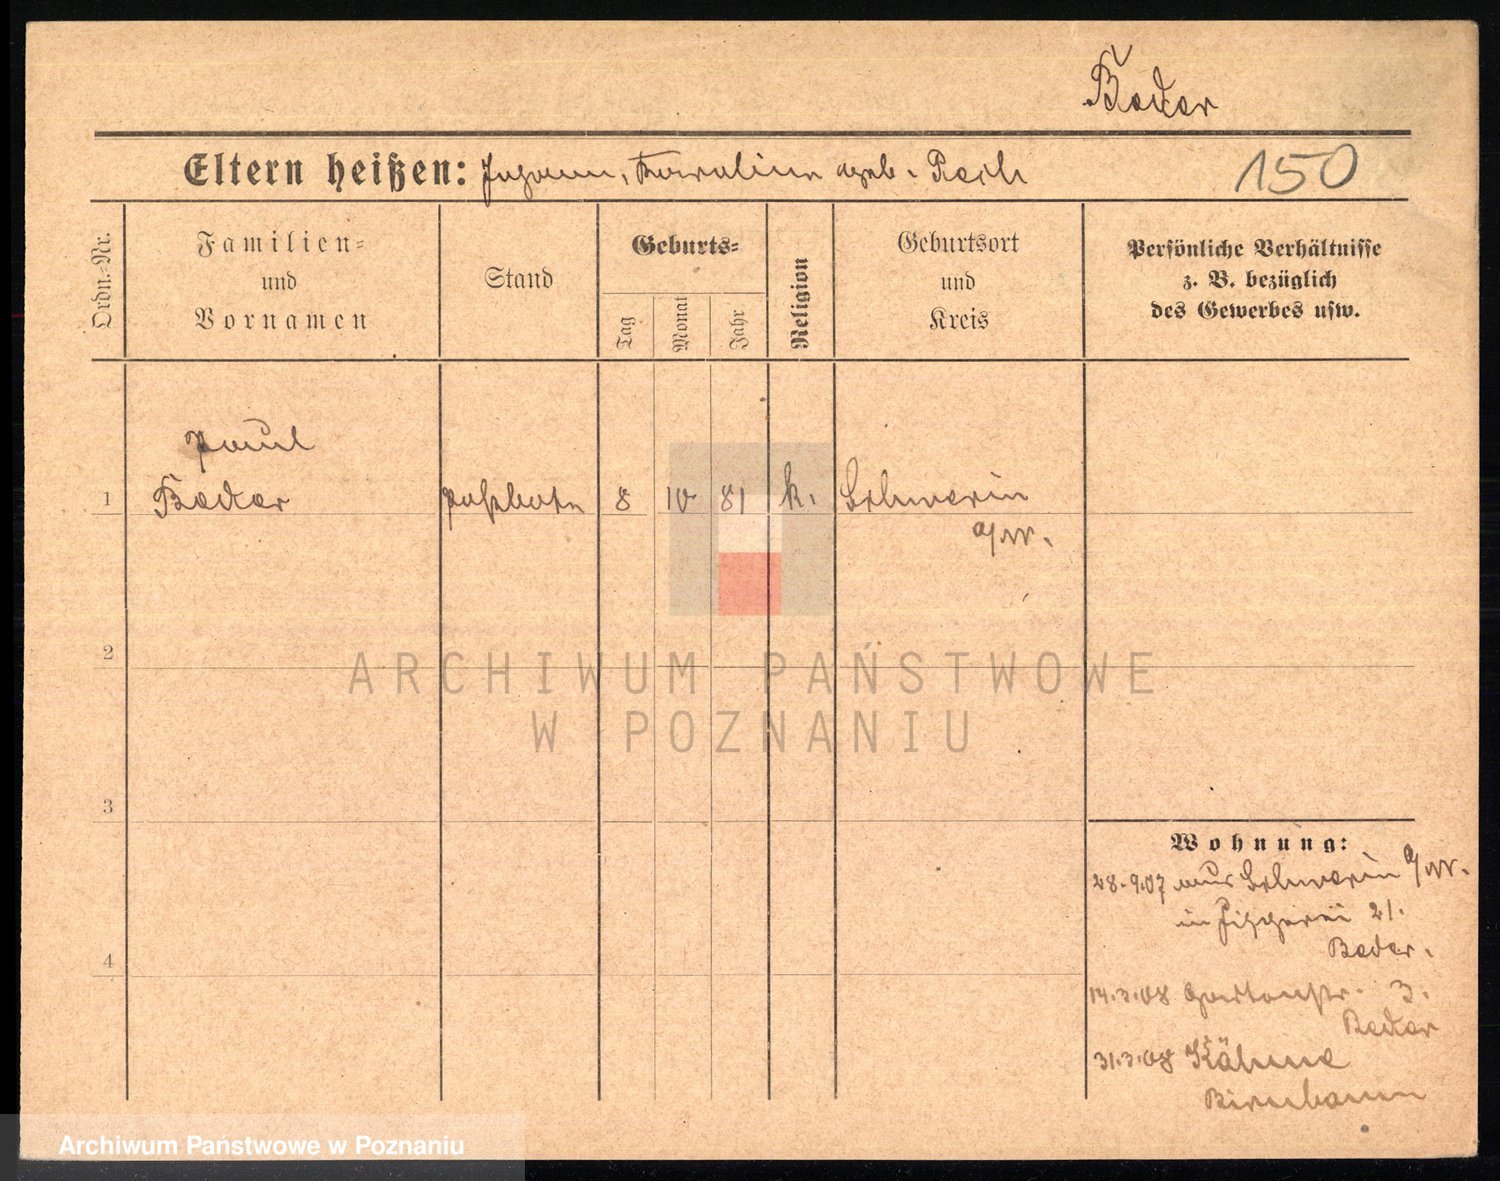 Bader
Eltern heißen: Johann, Karoline geb. Reich
150
Ordn.-Nr.
Familien-
und
Vornamen
Stand
Geburts-
Tag
Monat
Jahr
Religion
Geburtsort
und
Kreis
Persönliche Verhältnisse
z. B. bezüglich
des Gewerbes usw.
Paul
1 Bader Postbote 8 10 81 k. Schwerin
a/W.
2
3
4
Wohnung:
28.9.07 aus Schwerin a/W.
in Fischerei 21.
Bader.
14.3.08 Gartenstr. 3.
Bader
31.3.08 Kähme
Birnbaum
ARCHIWUM PAŃSTWOWE
W POZNANIU
Archiwum Państwowe w Poznaniu